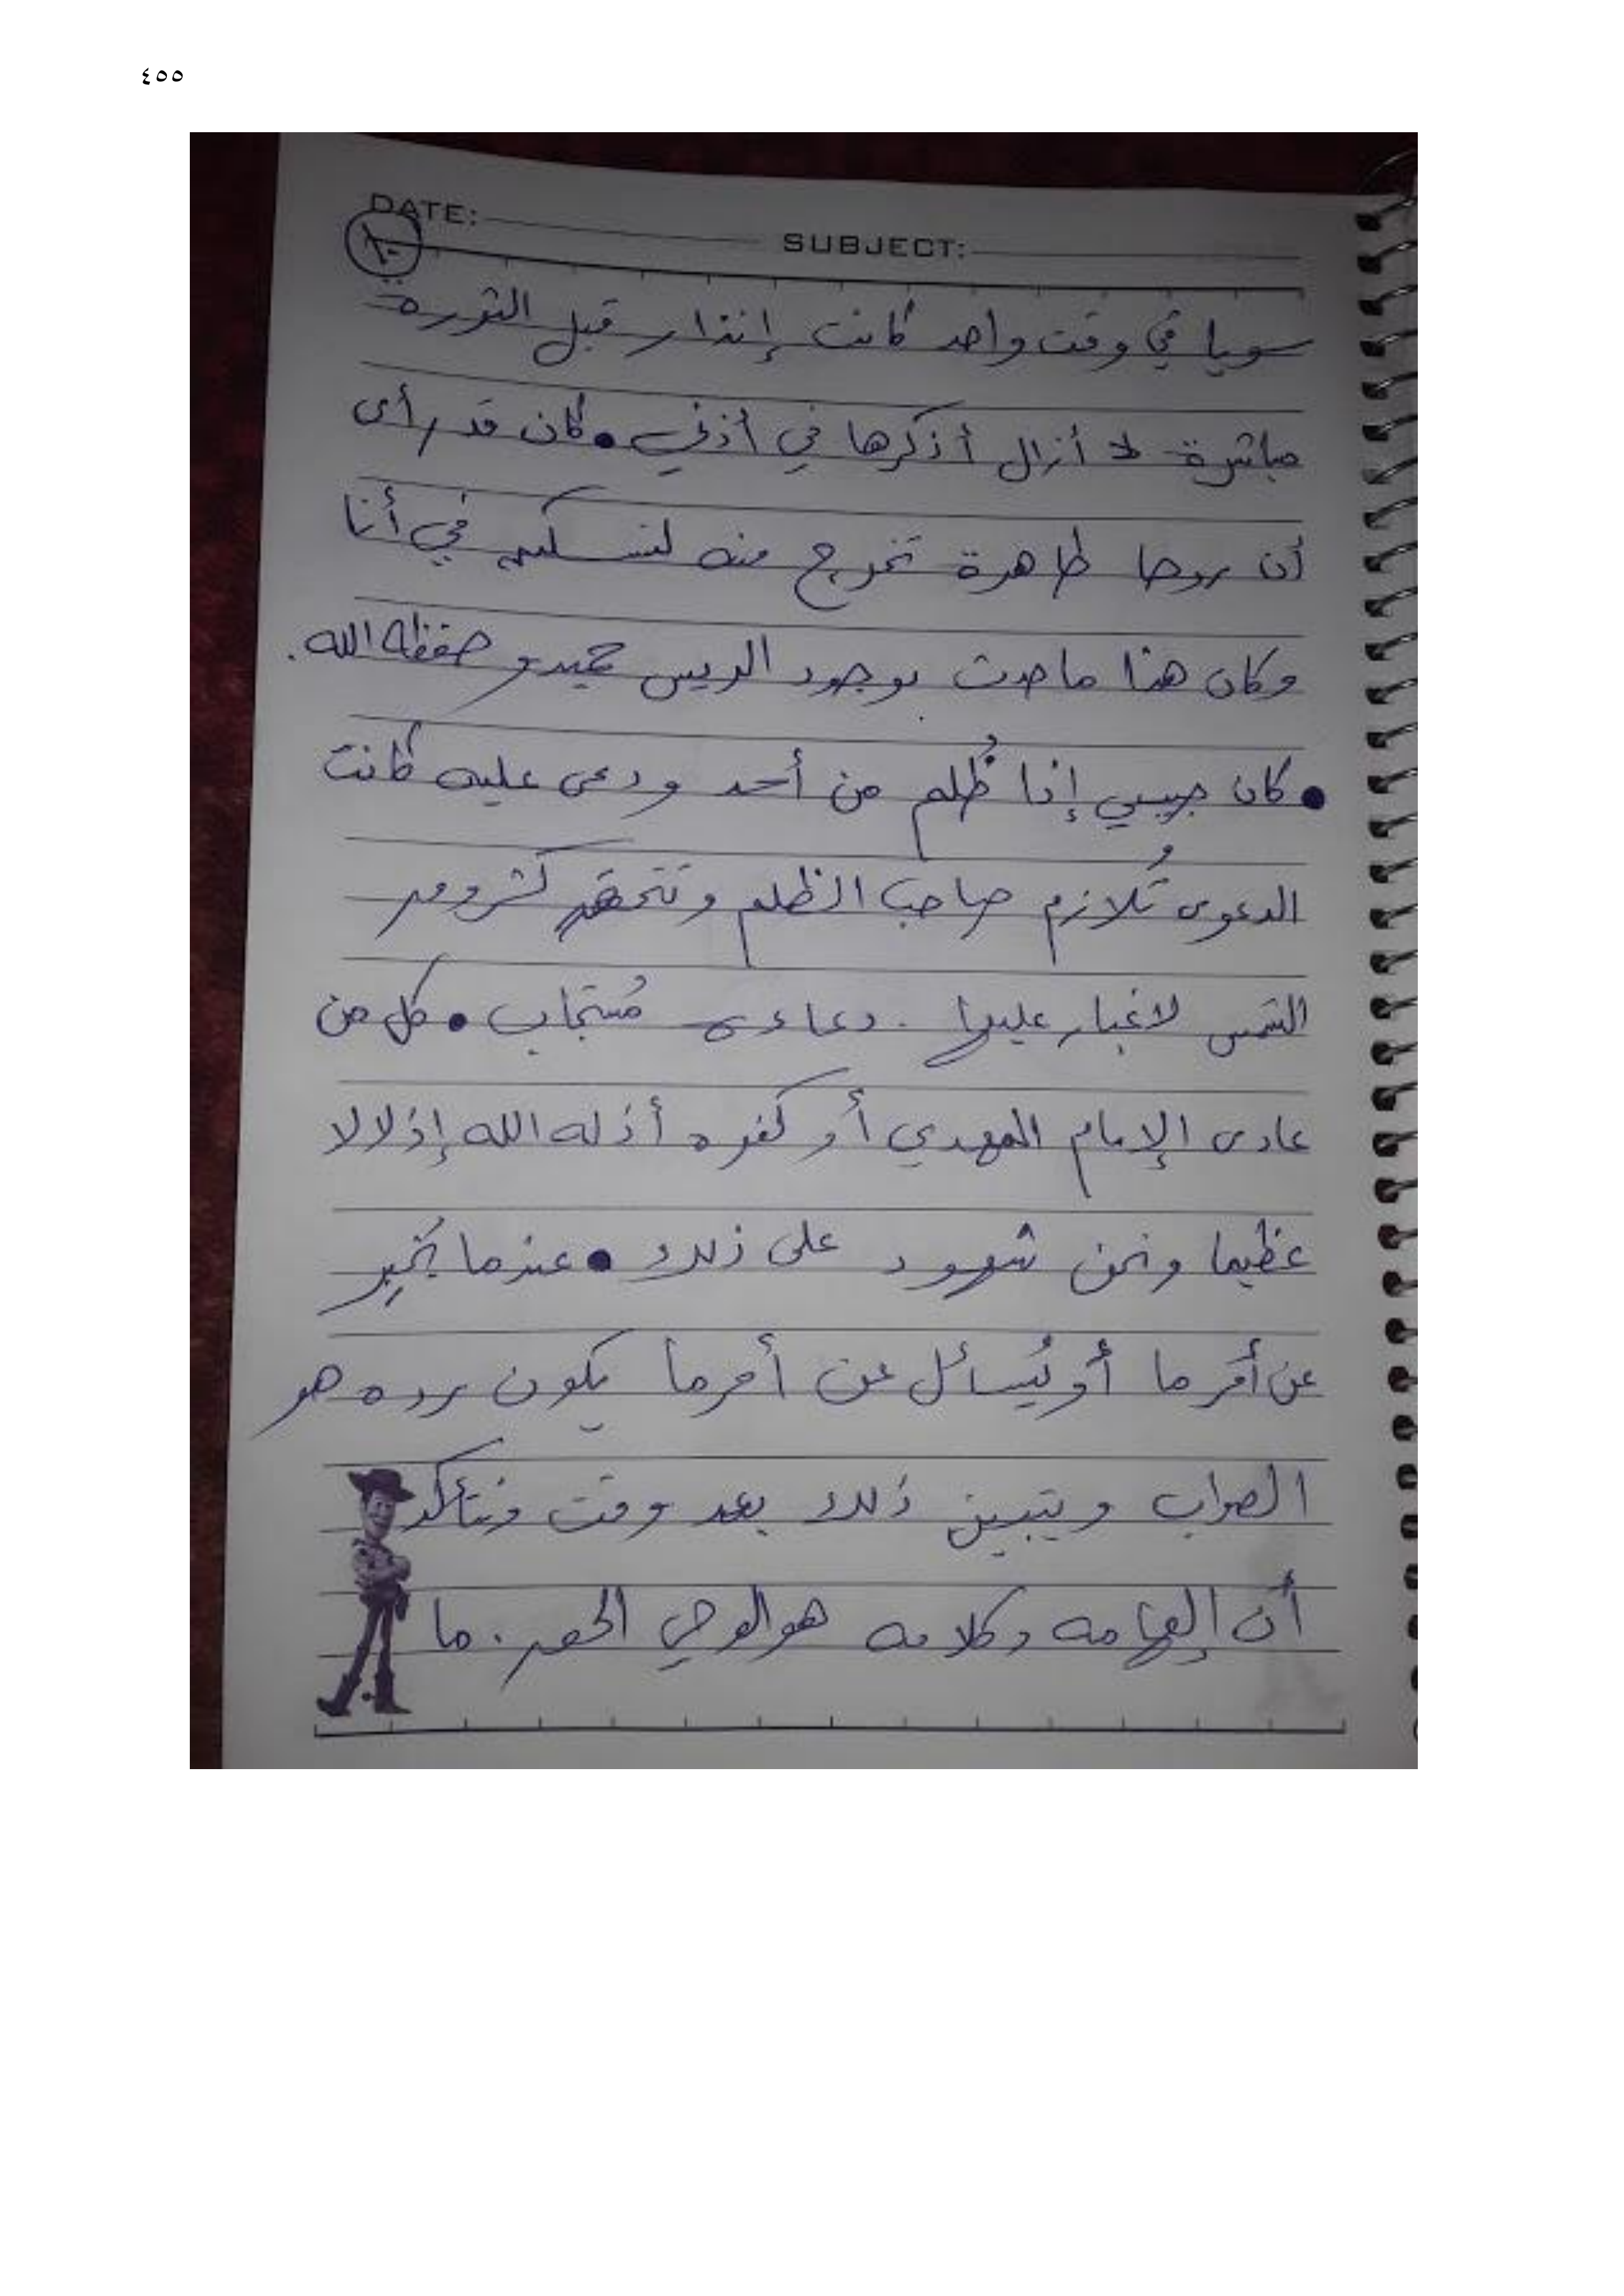 ٤٥٥
DATE:
SUBJECT:
١٠
سويا في وقت واحد كانت إنذار قبل الثورة
مباشرة لا أزال أذكرها في أذني • كان قد رأى
أن روحا طاهرة تخرج منه لتسكن في أنا
وكان هذا ما حدث بوجود الريس حميدو حفظه الله.
• كان حبيبي إذا ظُلم من أحد ودعى عليه كانت
الدعوى تُلازم صاحب الظلم وتتحقق كشروق
الشمس لا غبار عليها . دعاءه مُستجاب • كل من
عادى الإمام المهدي أو كفره أذله الله إذلالا
عظيما ونحن شهود على ذلك • عندما يُخبر
عن أمر ما أو يُسائل عن أمر ما يكون رده هو
الصواب ويتبين ذلك بعد وقت ونتأكد
أن إلهامه وكلامه هو الوحي الحق . ما